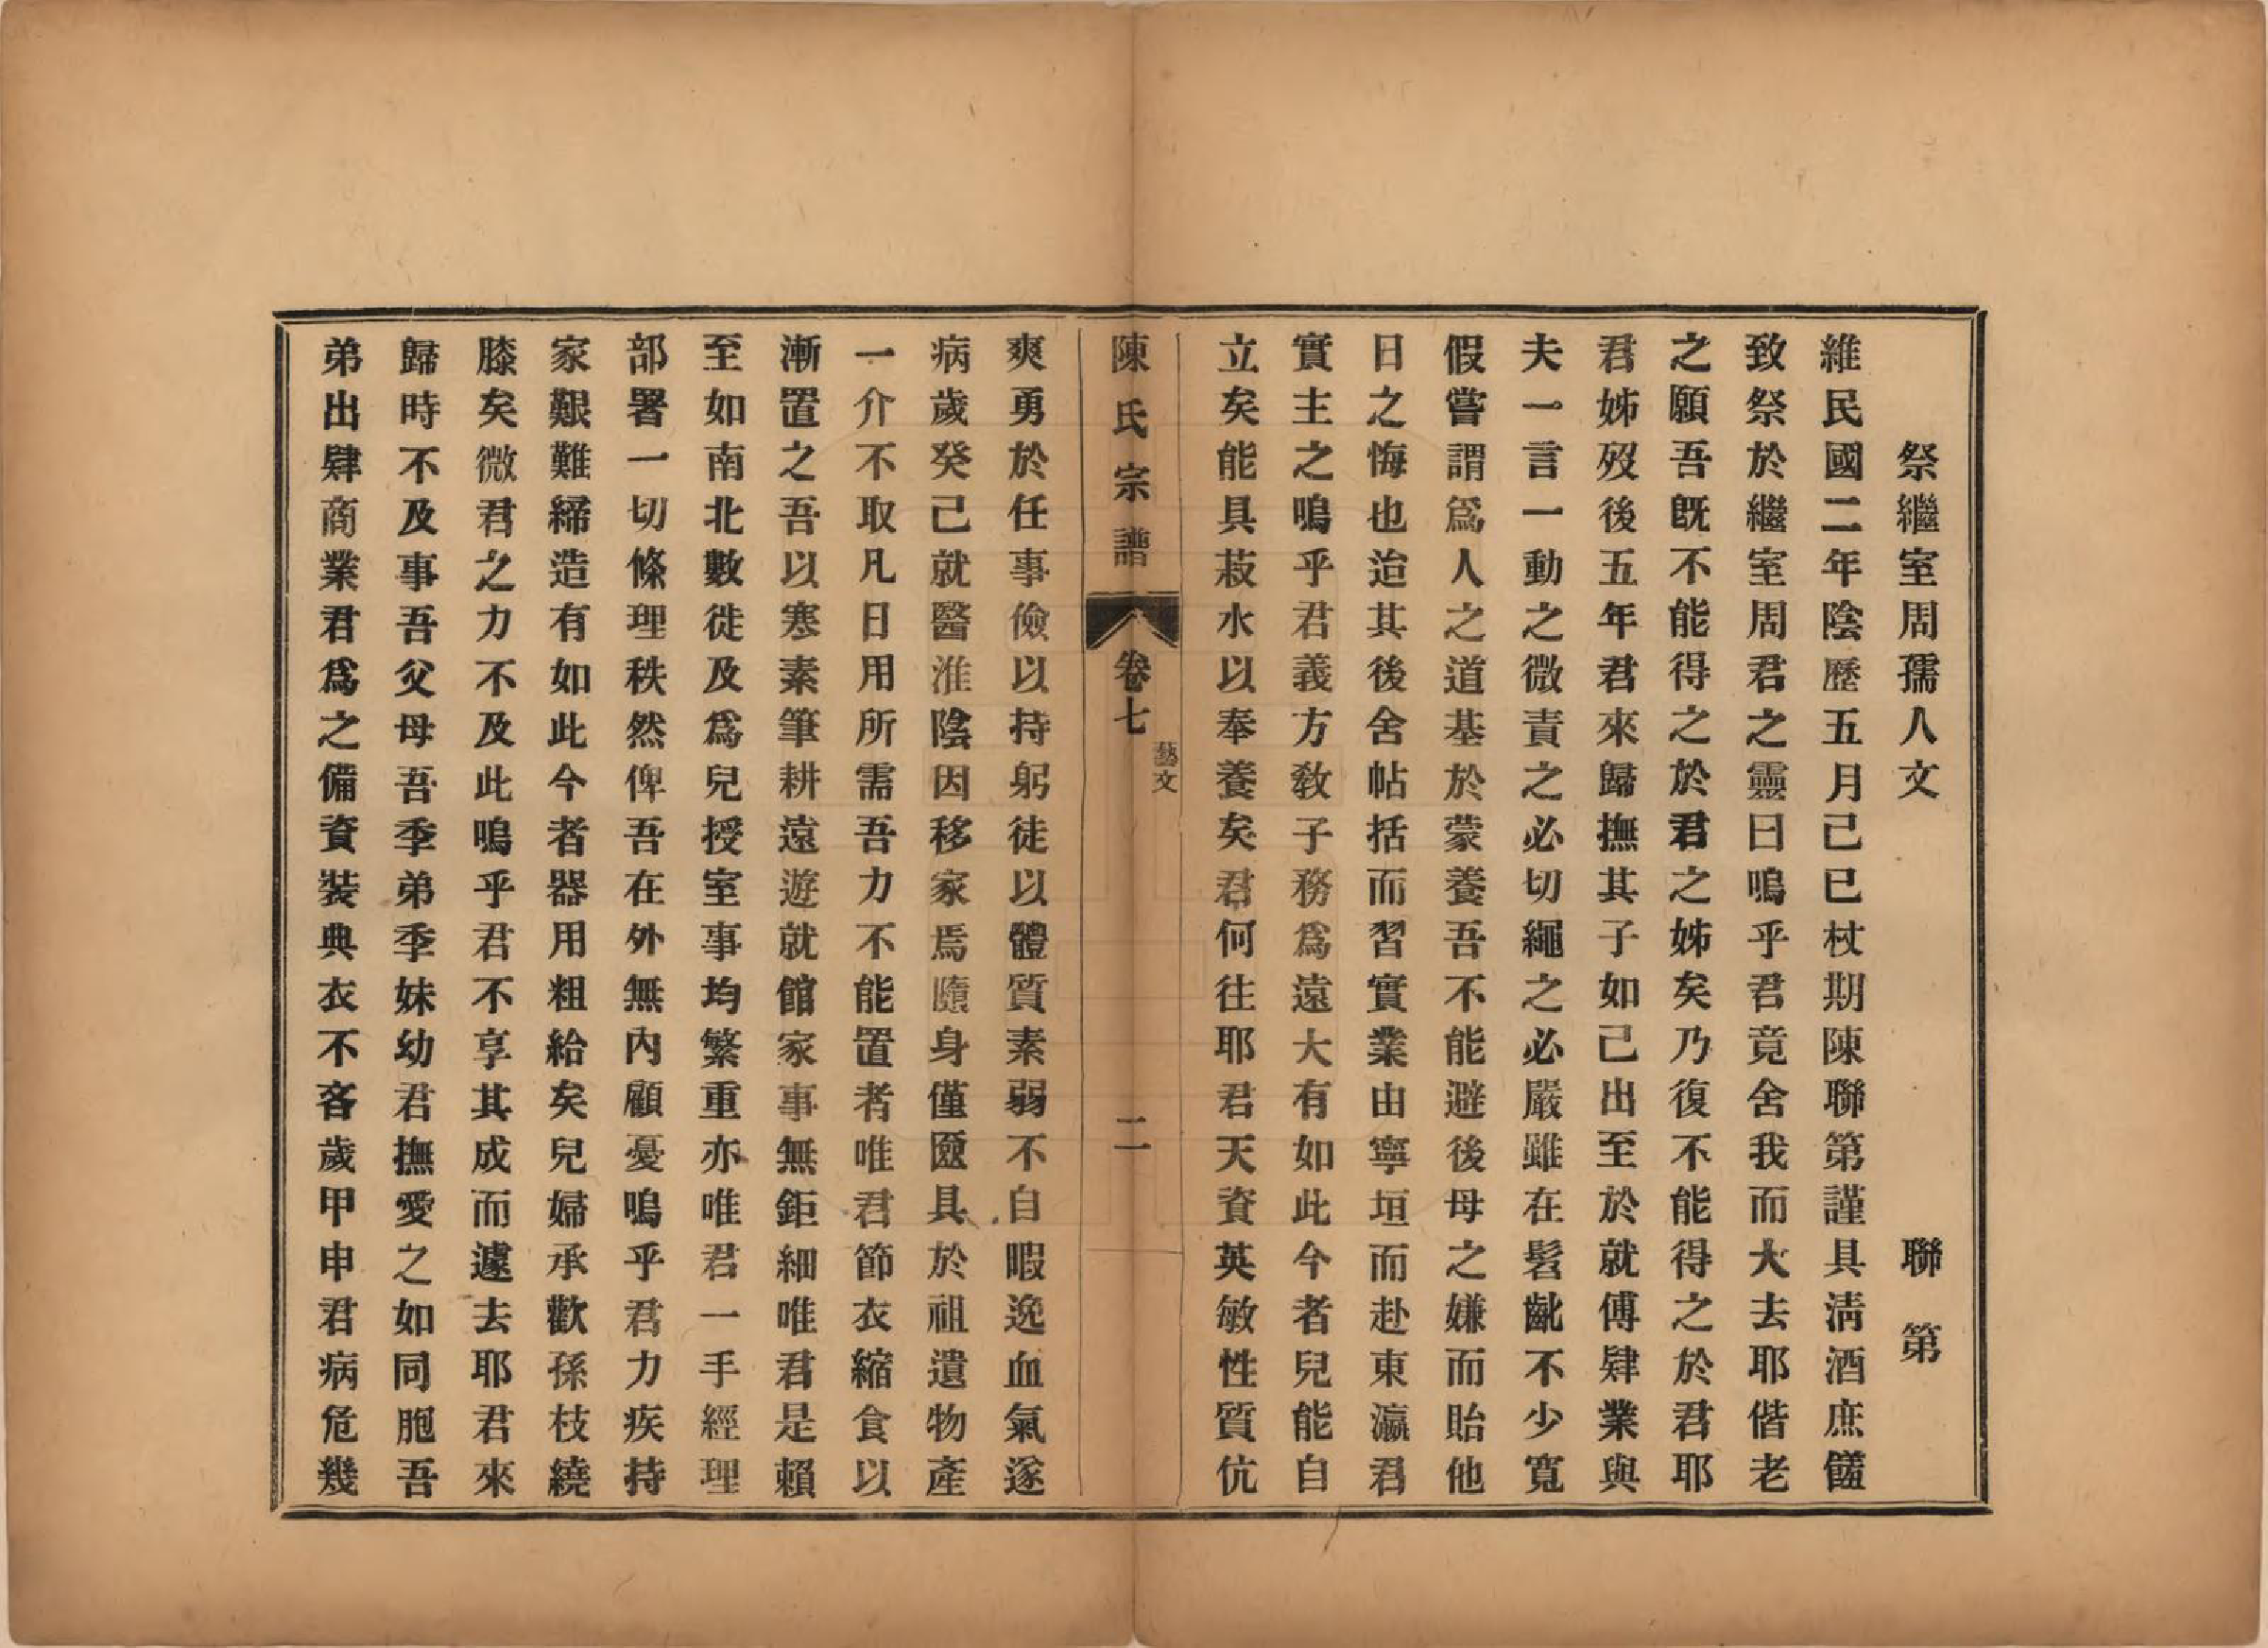 祭繼室周孺人文　聯第
維民國二年陰歷五月己巳杖期陳聯第謹具淸酒庶饈
致祭於繼室周君之靈曰嗚乎君竟舍我而大去耶偕老
之願吾旣不能得之於君之姊矣乃復不能得之於君耶
君姊歿後五年君來歸撫其子如己出至於就傅肄業與
夫一言一動之微責之必切繩之必嚴雖在髫齔不少寬
假嘗謂爲人之道基於蒙養吾不能避後母之嫌而貽他
日之悔也迨其後舍帖括而習實業由寧垣而赴東瀛君
實主之嗚乎君義方敎子務爲遠大有如此今者兒能自
立矣能具菽水以奉養矣君何往耶君天資英敏性質伉
陳氏宗譜　卷七　藝文　二
爽勇於任事儉以持躬徒以體質素弱不自暇逸血氣遂
病歲癸己就醫淮陰因移家焉隨身僅匳具於祖遺物產
一介不取凡日用所需吾力不能置者唯君節衣縮食以
漸置之吾以寒素筆耕遠遊就館家事無鉅細唯君是賴
至如南北數徙及爲兒授室事均繁重亦唯君一手經理
部署一切條理秩然俾吾在外無內顧憂嗚乎君力疾持
家艱難締造有如此今者器用粗給矣兒婦承歡孫枝繞
膝矣微君之力不及此嗚乎君不享其成而遽去耶君來
歸時不及事吾父母吾季弟季妹幼君撫愛之如同胞吾
弟出肄商業君爲之備資裝典衣不吝歲甲申君病危幾